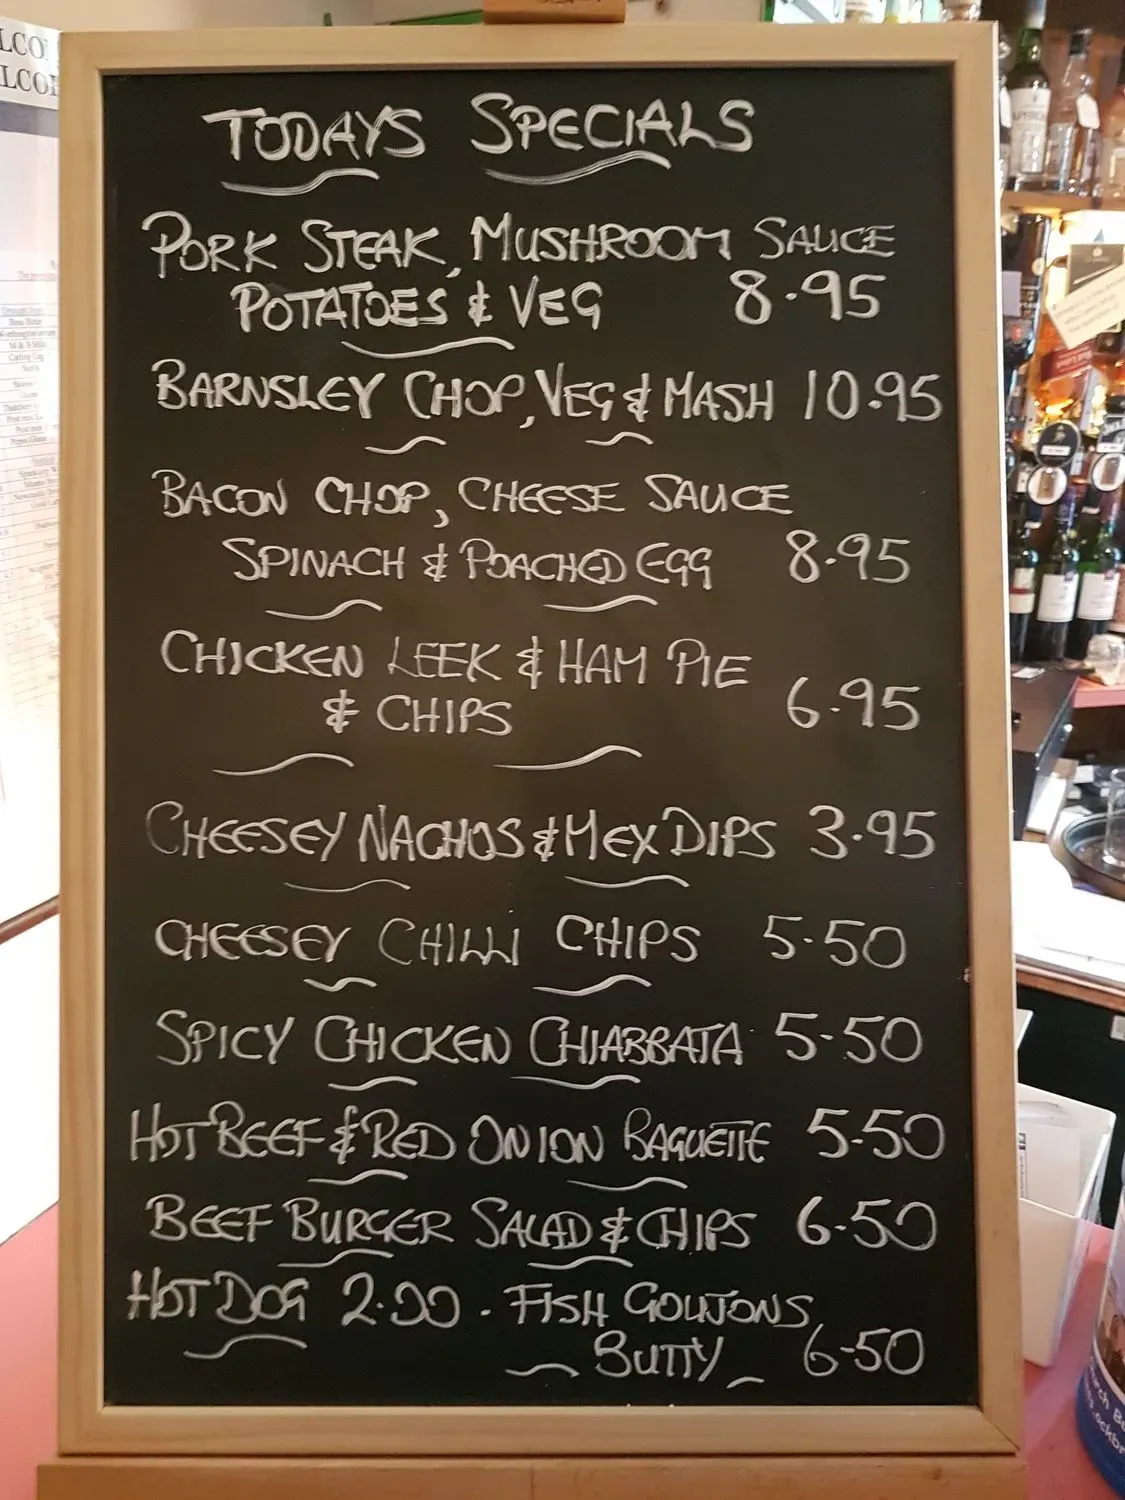 TODAYS SPECIALS
PORK STEAK, MUSHROOM SAUCE
POTATOES & VEG 8.95
BARNSLEY CHOP, VEG & MASH 10.95
BACON CHOP, CHEESE SAUCE
SPINACH & POACHED EGG 8.95
CHICKEN LEEK & HAM PIE
& CHIPS 6.95
CHEESEY NACHOS & MEX DIPS 3.95
CHEESEY CHILLI CHIPS 5-50
SPICY CHICKEN CHIABBATA 5-50
HOT BEEF & RED ONION BAGUETTE 5-50
BEEF BURGER SALAD & CHIPS 6-50
HOT DOG 2.00 . FISH GOUJONS,
BUTTY 6-50